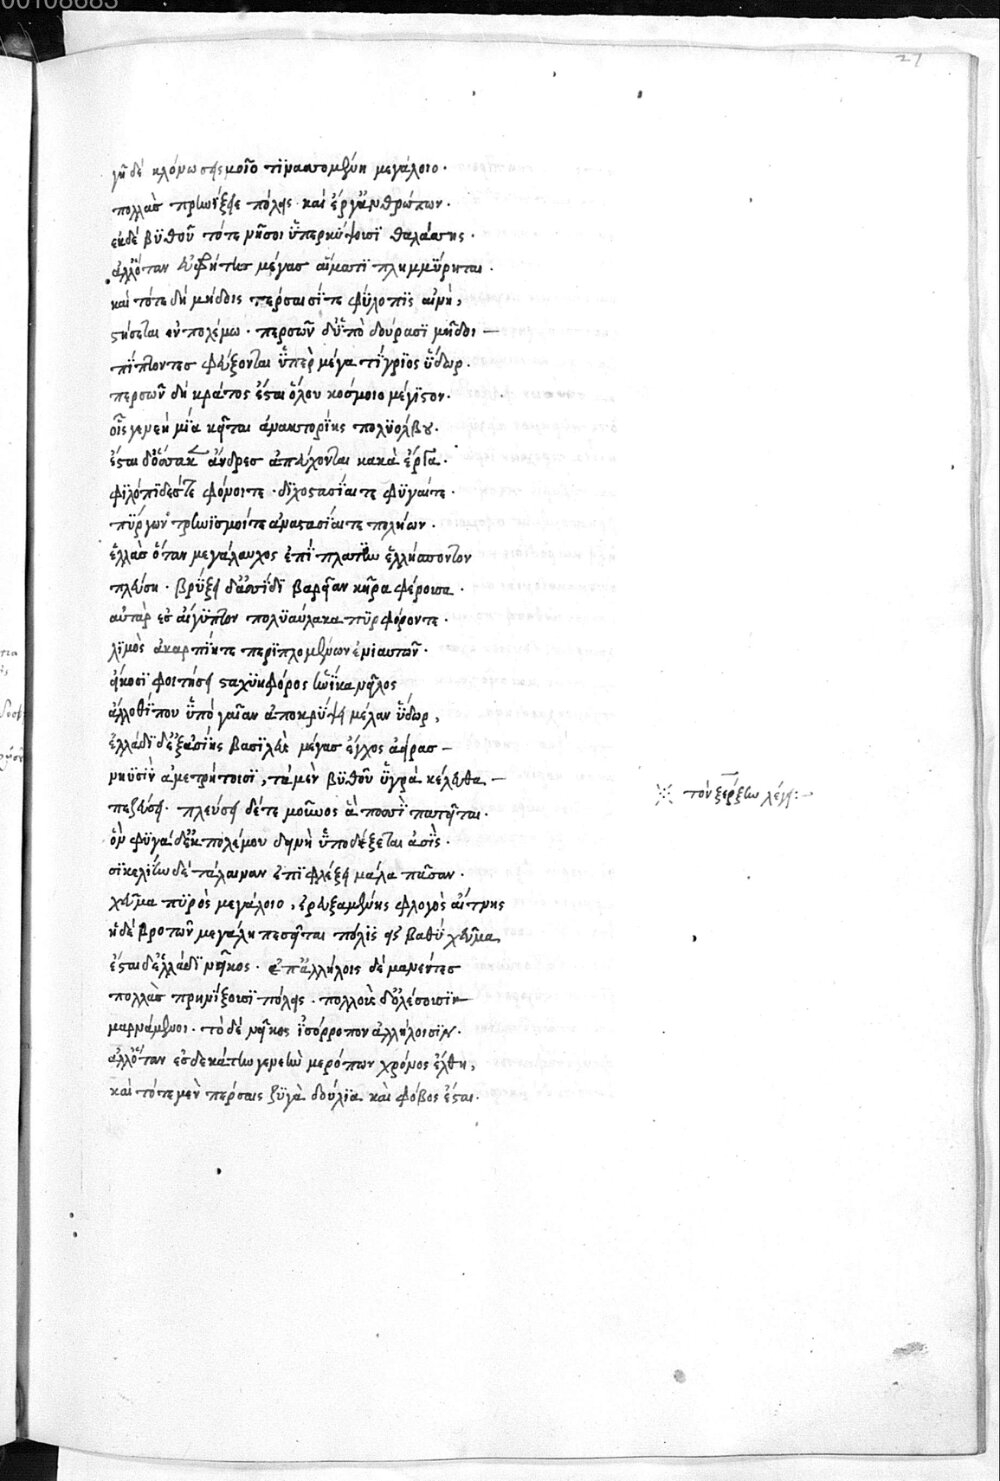 00108683
27
γῆ δὲ κλόνω σεισμοῖο τινασσομένη μεγάλοιο.
πολλὰς πρηνίξειε πόλεις καὶ ἔργ' ἀνθρώπων.
ἐκ δὲ βυθοῦ τότε νῆσοι ὑπερκύψουσι θαλάσσης.
ἀλλ' ὅταν εὐφρήτης μέγας αἵματι πλημμύρηται.
καὶ τότε δὴ μήδοις πέρσαισί τε φύλοπις αἰνὴ,
στήσεται ἐν πολέμω. περσῶν δ' ὑπὸ δούρασι μῆδοι
πίπτοντες φεύξονται ὑπὲρ μέγα τίγριος ὕδωρ.
περσῶν δὴ κράτος ἔσται ὅλου κόσμοιο μέγιστον.
οἷς γενεὴ μία κεῖται ἀνακτορίης πολυόλβου.
ἔσται δ' ὅσσακ' ἄνδρες ἀπεύχονται κακὰ ἔργα.
φιλόπιδές τε φόνοι τε. διχοστασίαι τε φυγαί τε.
πύργων πρηνισμοί τε ἀναστασίαι τε πολήων.
ἑλλὰς ὅταν μεγάλαυχος ἐπὶ πλατὺν ἑλλήσποντον
πλεύση. βρύξει δ' ἀσσίδι βαρεῖαν κῆρα φέρουσα.
αὐτὰρ ἐς αἴγυπτον πολυαύλακα πυρφόρον τε.
λιμὸς ἀκαρπίη τε περιπλομένων ἐνιαυτῶν.
εἴκοσι φοιτήσει σταχυηφόρος ἡνίκα νεῖλος
ἄλλοθί που ὑπὸ γαῖαν ἀποκρύψει μέλαν ὕδωρ,
ἑλλάδι δ' ἐξ ἀσίης βασιλεὺς μέγας ἔγχος ἀείρας
νηυσὶν ἀμετρήτοισι, τὰ μὲν βυθοῦ ὑγρὰ κέλευθα
πεζεύσει. πλεύσει δέ τε
※ τὸν ξέρξην λέγει:
ὃν φυγάδ' ἐκ πολέμου δεινὴ ὑποδέξεται ἀσίς.
σικελίην δὲ τάλαιναν ἐπιφλέξει μάλα πᾶσαν.
χεῦμα πυρὸς μεγάλοιο, ἐρευξαμένης φλογὸς αἴτνης
ἠδὲ βροτῶν μεγάλη πεσεῖται πόλις εἰς βαθὺ χεῦμα
ἔσται δ' ἑλλάδι νεῖκος. ἐπ' ἀλλήλοις δὲ μανέντες
πολλὰς πρηνίξουσι πόλεις. πολλοὺς δ' ὀλέσουσιν
μαρνάμενοι. τὸ δὲ νεῖκος ἰσόρροπον ἀλλήλοισιν.
ἀλλ' ὅταν ἐς δεκάτην γενεὴν μερόπων χρόνος ἔλθη,
καὶ τότε μὲν πέρσαις ζυγὰ δούλια καὶ φόβος ἔσται.